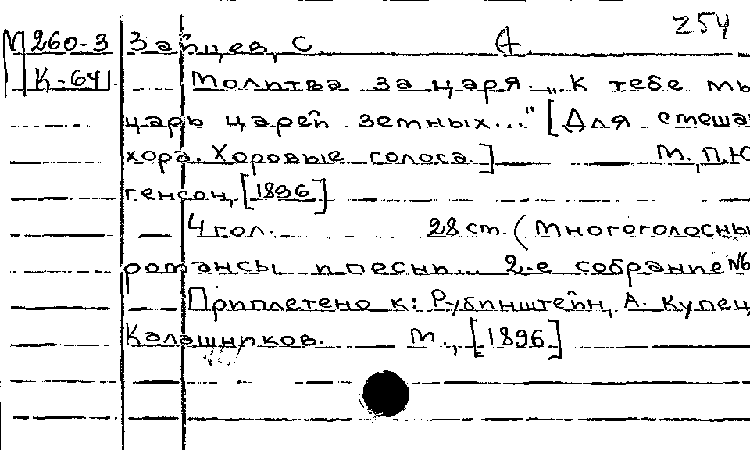 254
М 260-3 Зайцев, С. А.
К-64 Молитва за царя „К тебе мы
царь царей земных..." [Для смеша
хора. Хоровые голоса.] М., П.Ю
генсон, [1896]
4 гол. 28 см. (Многоголосны
романсы и песни... 2-е собрание №6
Приплетено к: Рубинштейн, А. Купец
Калашников. М., [1896]